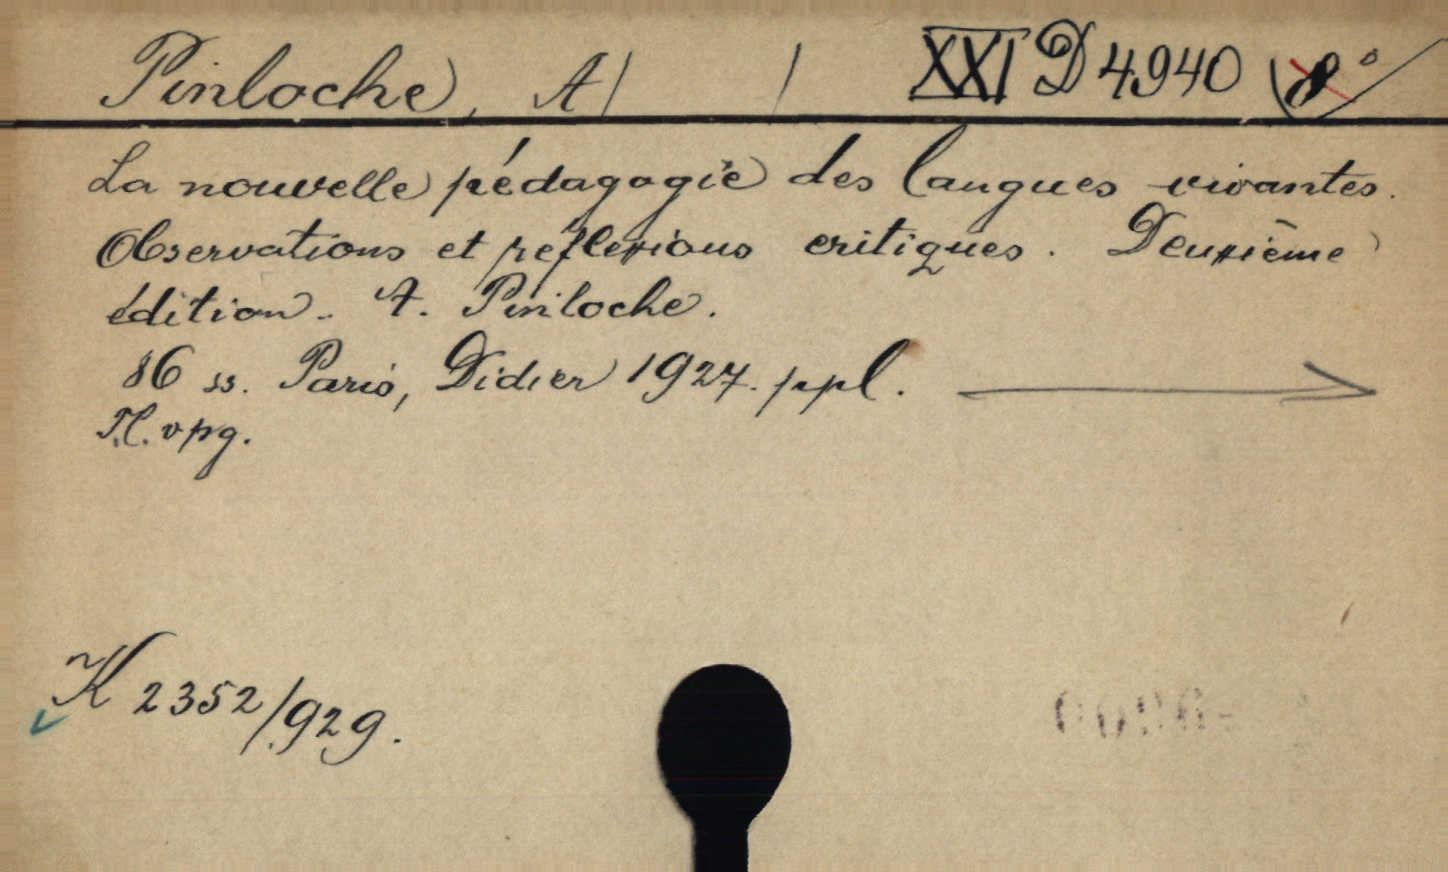 Pinloche, A/ / XXI D 4940 8°
La nouvelle pédagogie des langues vivantes.
Observations et reflexions critiques. Deuxième
édition. A. Pinloche.
86 ss. Paris, Didier 1927. ppl.
K 2352/929.